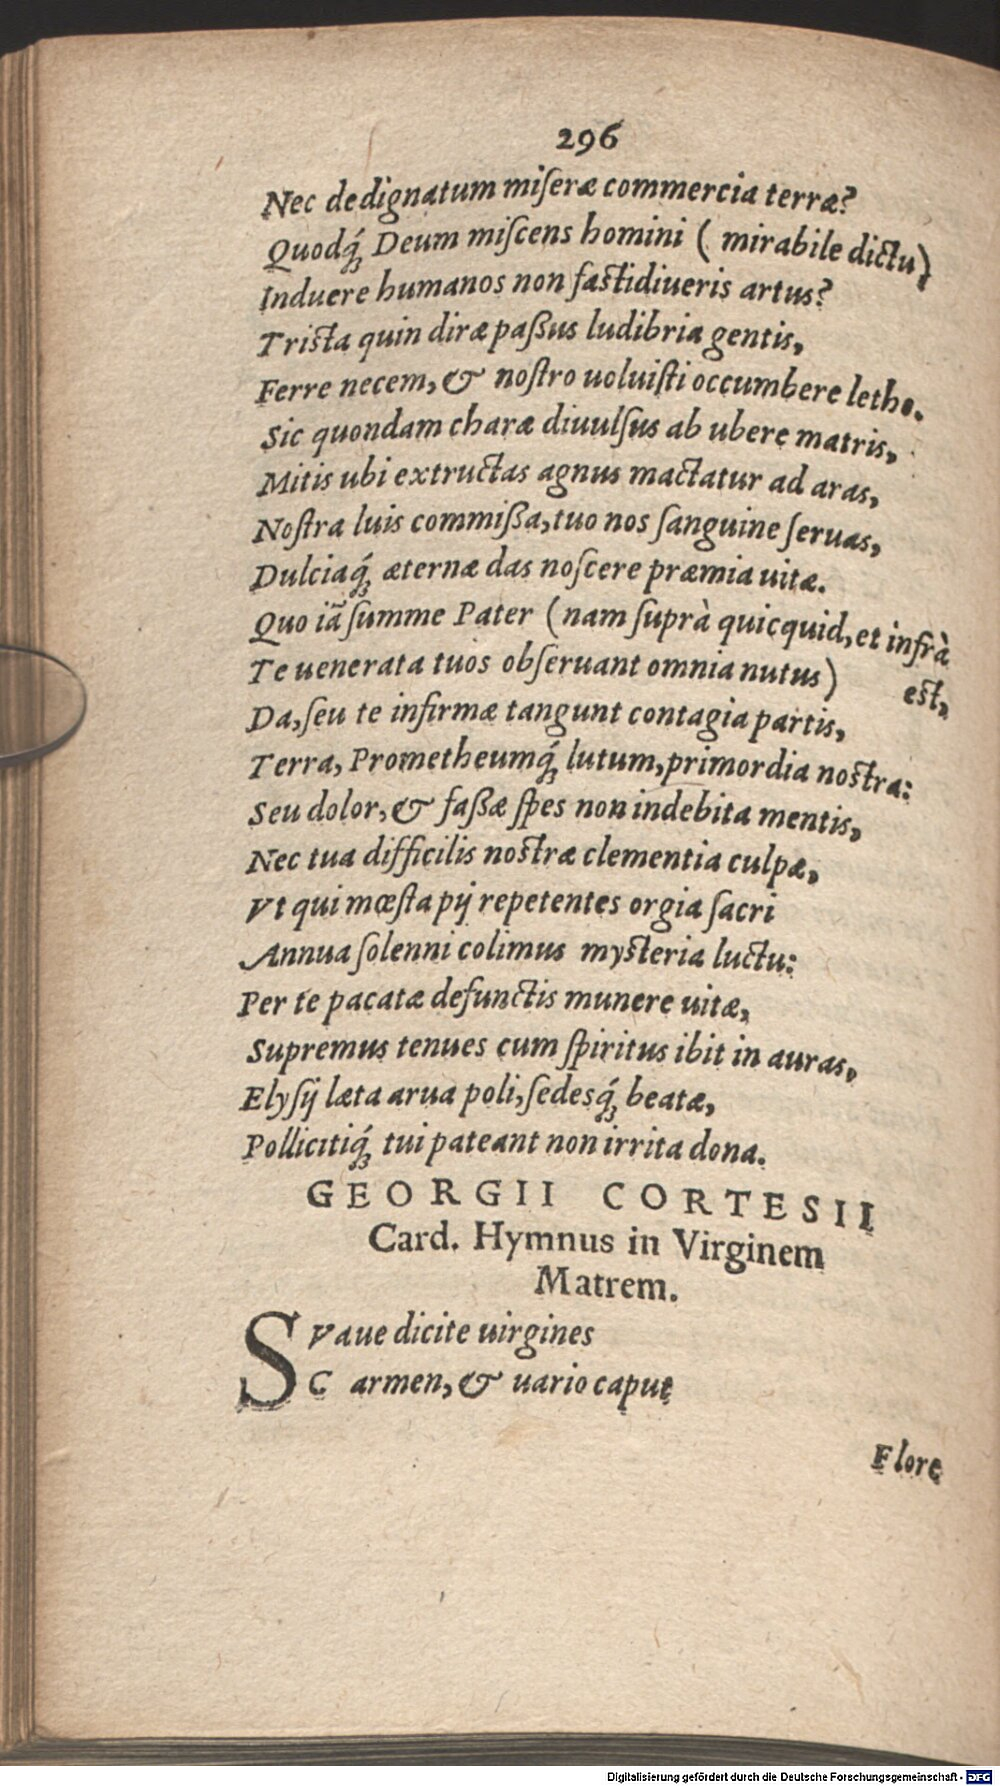 296
Nec dedignatum miseræ commercia terræ?
Quodq́; Deum miscens homini ( mirabile dictu)
Induere humanos non fastidiueris artus?
Trista quin diræ paßus ludibria gentis,
Ferre necem, & nostro uoluisti occumbere letho.
Sic quondam charæ diuulsus ab ubere matris,
Mitis ubi extructas agnus mactatur ad aras,
Nostra luis commißa, tuo nos sanguine seruas,
Dulciaq́; æternæ das noscere præmia uitæ.
Quo iā summe Pater (nam suprà quicquid, et infrà
Te uenerata tuos obseruant omnia nutus) est,
Da, seu te infirmæ tangunt contagia partis,
Terra, Prometheumq́; lutum, primordia nostra:
Seu dolor, & faßæ spes non indebita mentis,
Nec tua difficilis nostræ clementia culpæ,
Vt qui mœsta pij repetentes orgia sacri
Annua solenni colimus mysteria luctu:
Per te pacatæ defunctis munere uitæ,
Supremus tenues cum spiritus ibit in auras,
Elysij læta arua poli, sedesq́; beatæ,
Pollicitiq́; tui pateant non irrita dona.
GEORGII CORTESII
Card. Hymnus in Virginem
Matrem.
SVaue dicite uirgines
Carmen, & uario caput
Flore
Digitalisierung gefördert durch die Deutsche Forschungsgemeinschaft - DFG